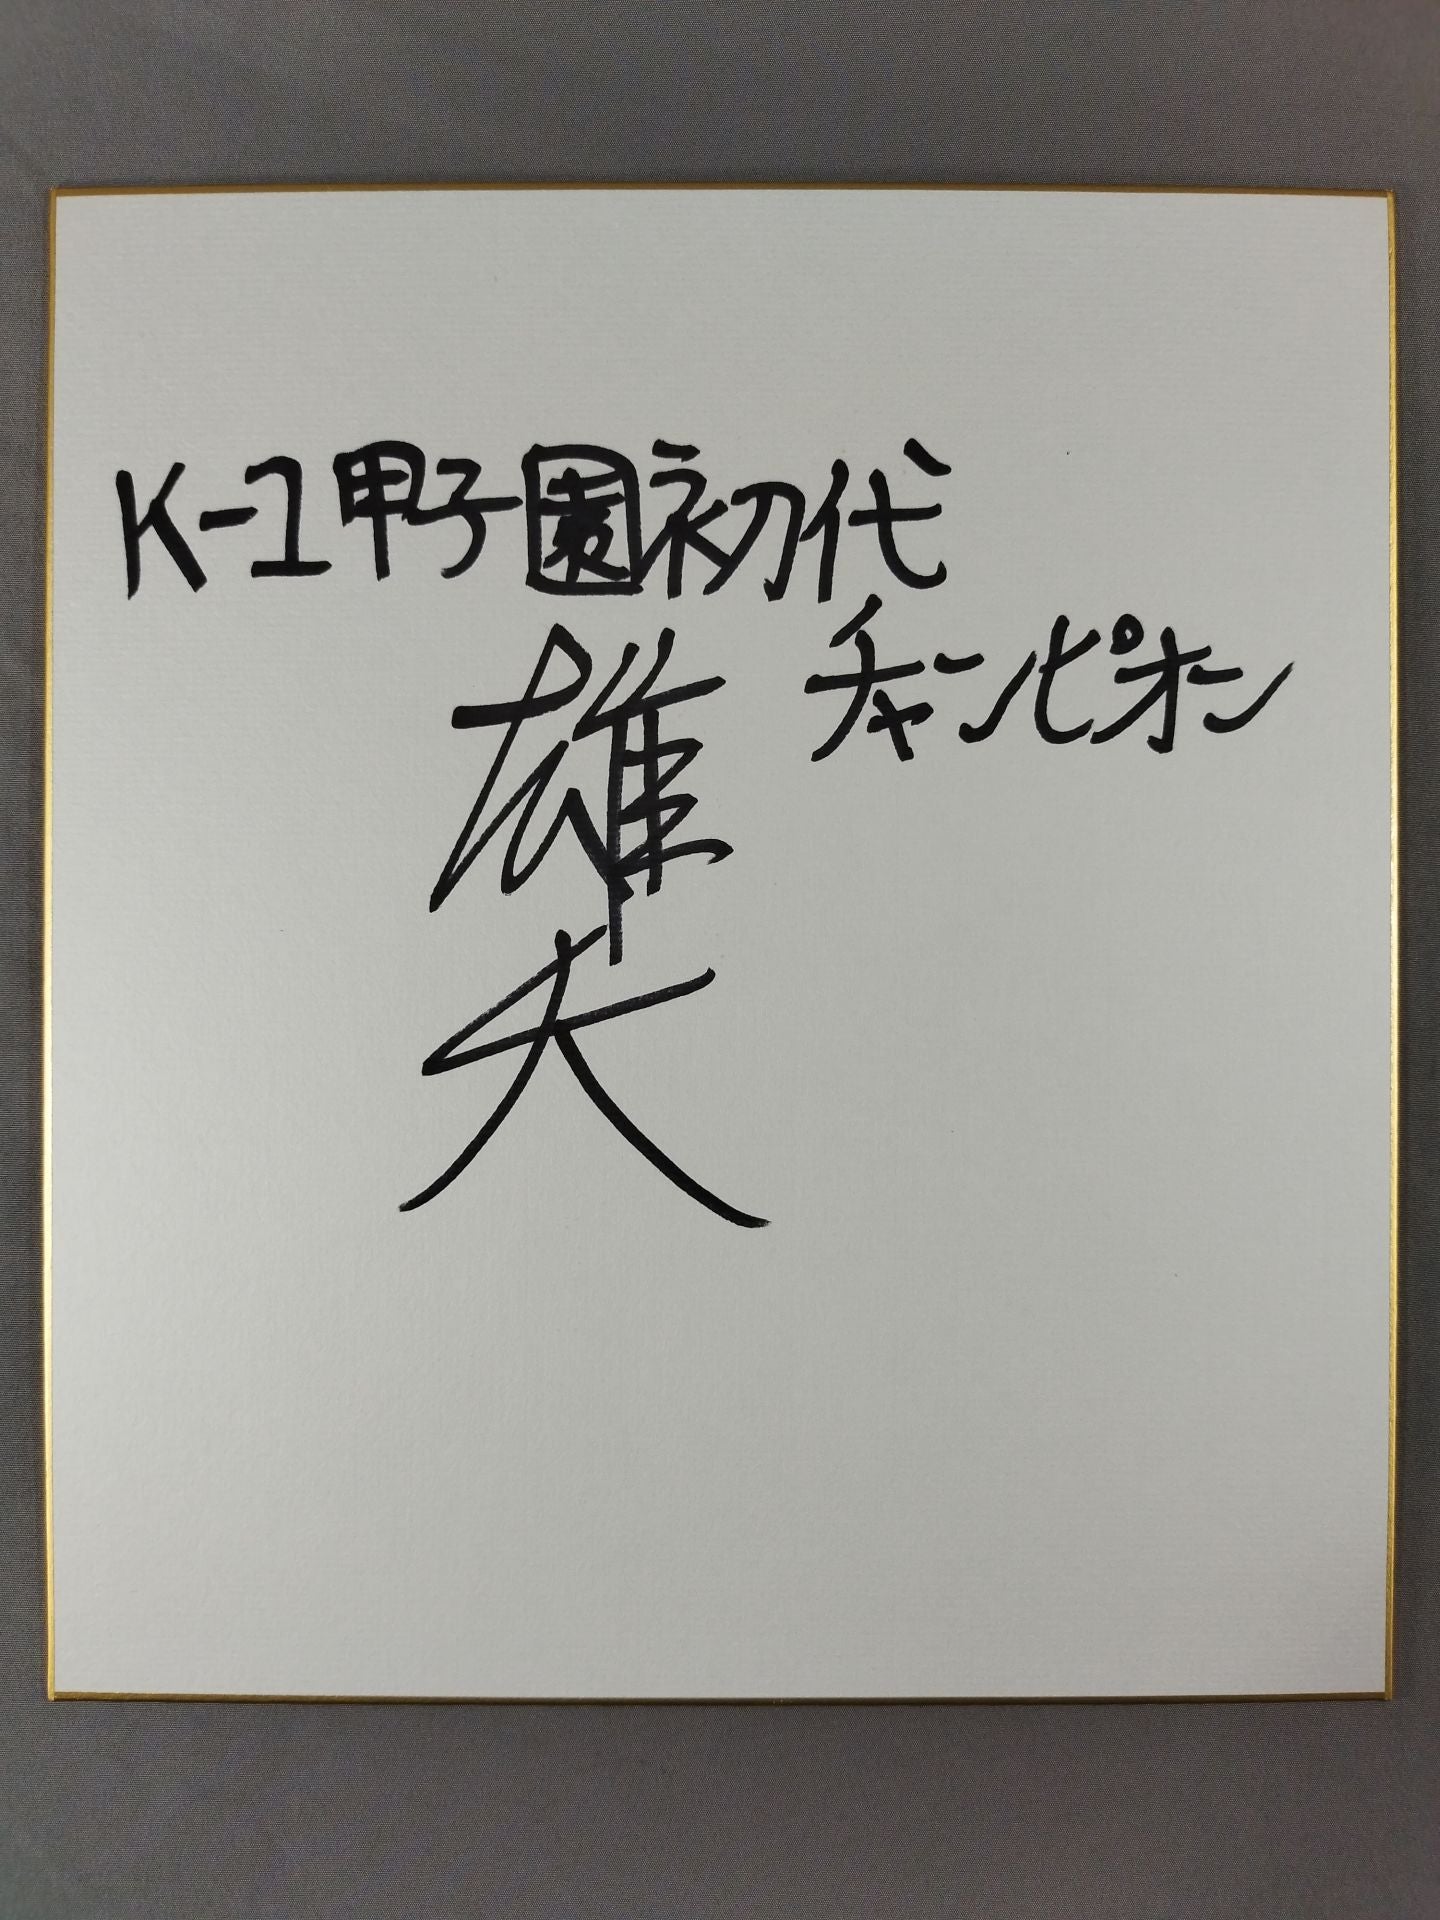 K-1甲子園初代
チャンピオン
雄大